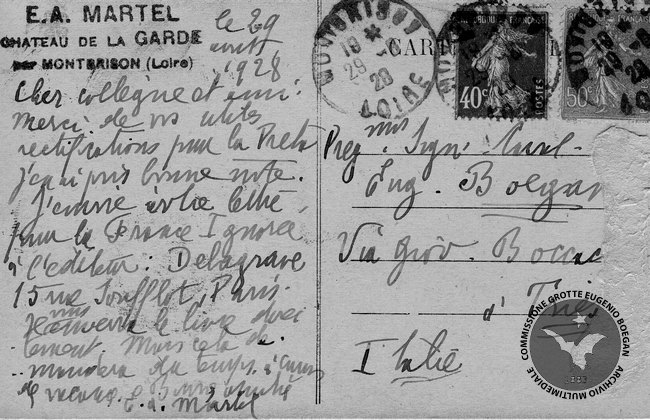 E.A. MARTEL
CHATEAU DE LA GARDE
par MONTBRISON (Loire)
le 29
août
1928
Cher collègue et ami
merci de vos utiles
rectifications pour la Preta
j'en ai pris bonne note.
J'envoie votre lettre
pour la France Ignorée
à l'éditeur : Delagrave
15 rue Soufflot, Paris.
le livre
Mais cela de
mandera du temps à cause
de
E. A. Martel
MONTBRISON
19 *
29 - 8
28
LOIRE
CARTE
40c
POSTES
50c
Preg mus Sign.
Eug. Boegan
Via Giov. Boccac
d' Tries
Italie
COMMISSIONE GROTTE EUGENIO BOEGAN
ARCHIVIO MULTIMEDIALE
1883